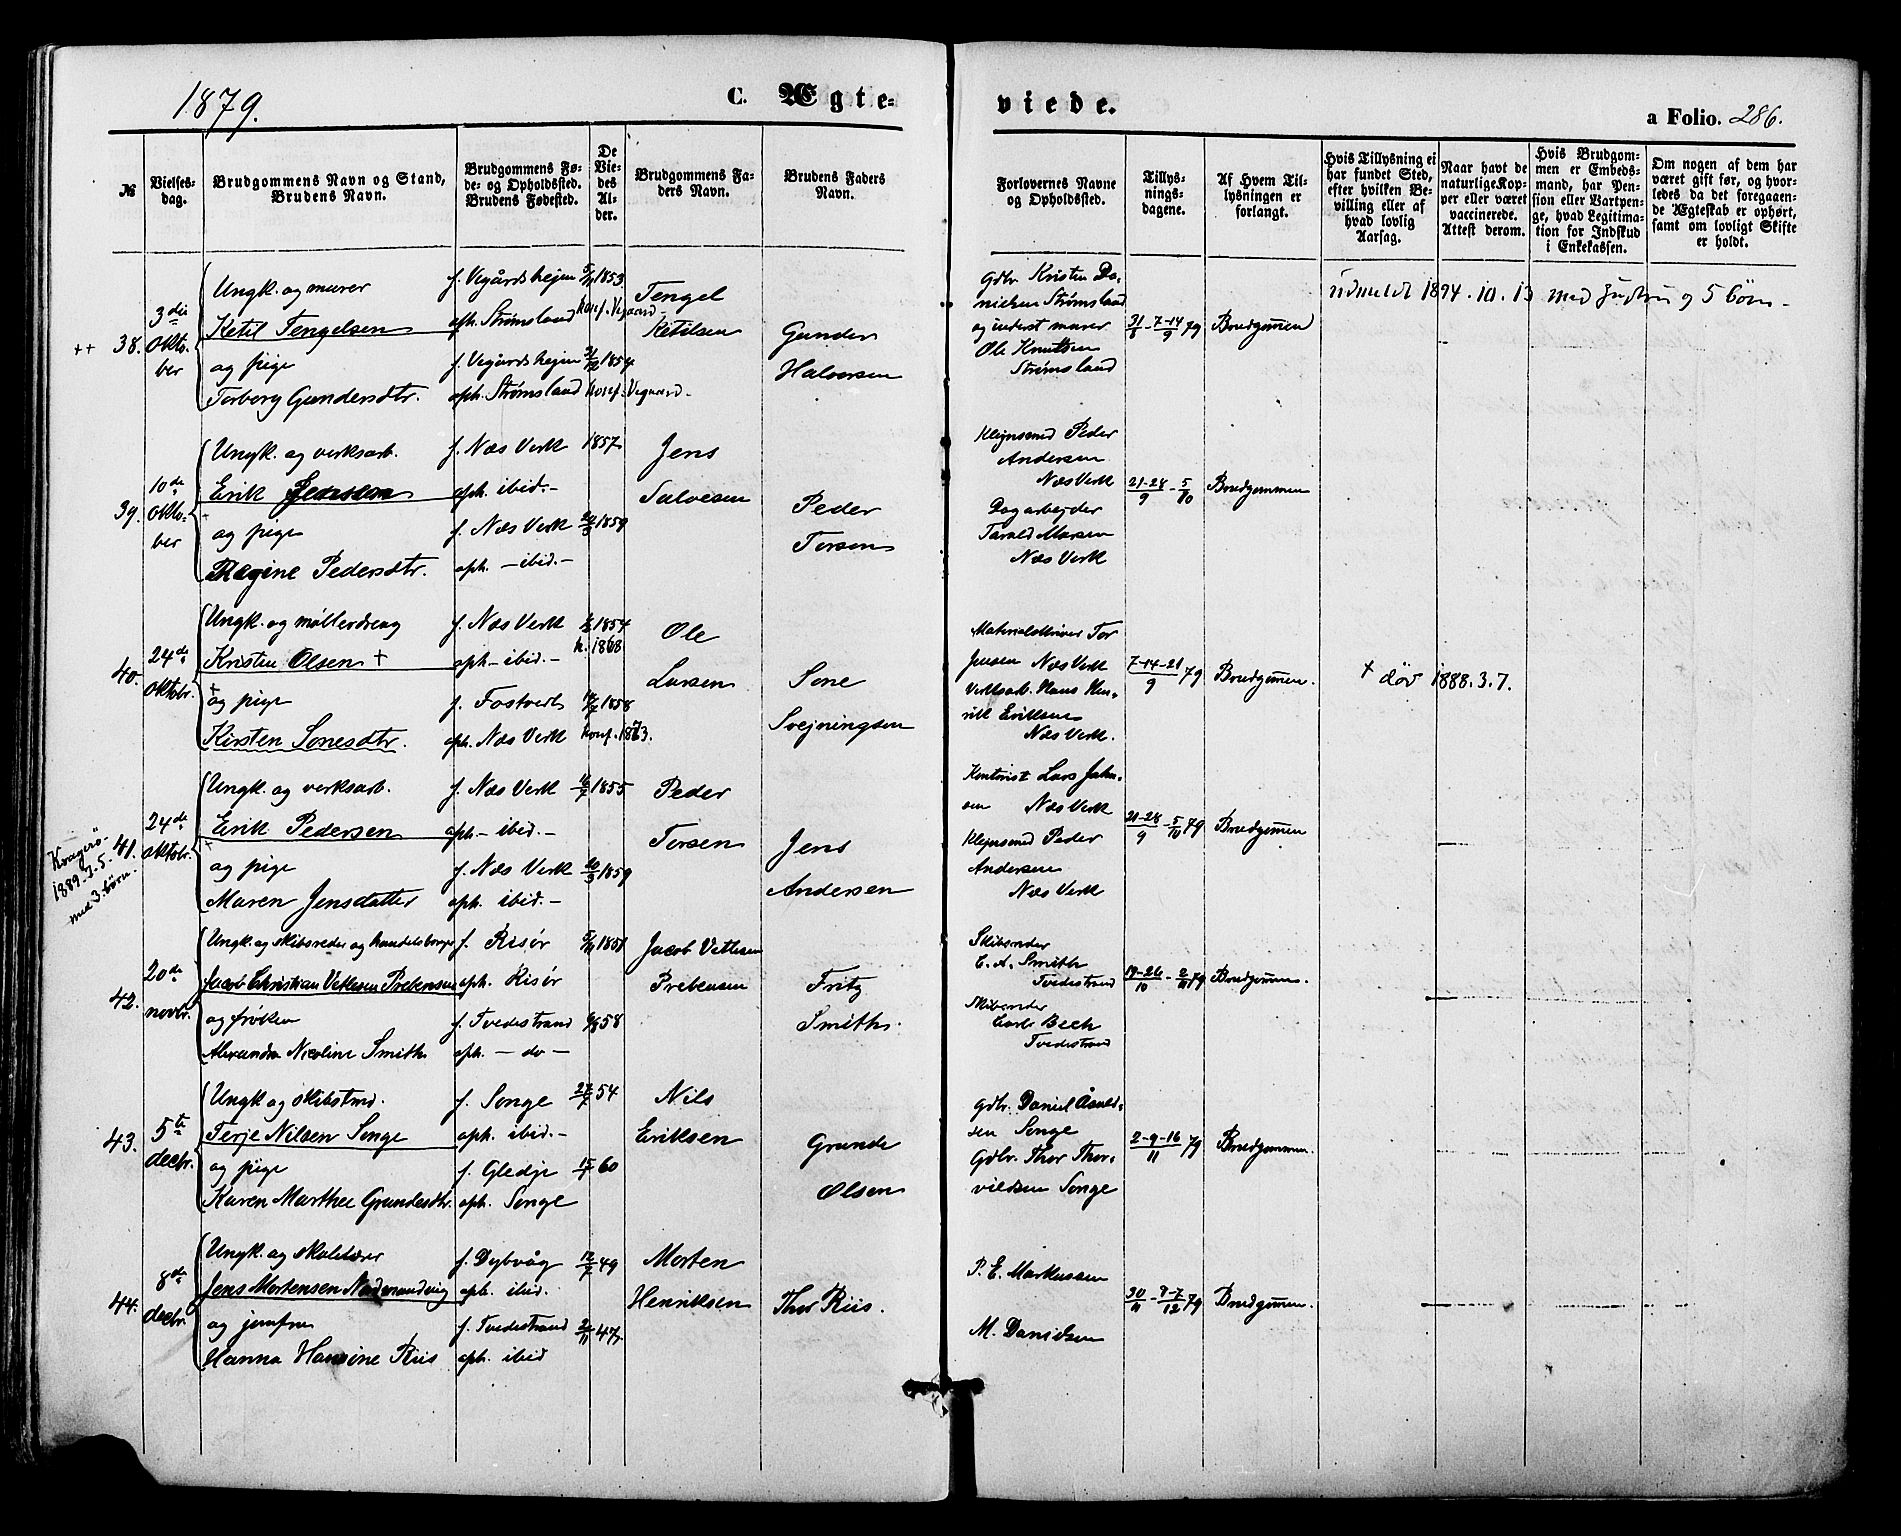 1879.
C. Ægte-
viede.
a Folio. 286.
№
Vielses-
dag.
Brudgommens Navn og Stand,
Brudens Navn.
Brudgommens Fø-
de- og Opholdssted.
Brudens Fødested.
De
Vie-
des
Al-
der.
Brudgommens Fa-
ders Navn.
Brudens Faders
Navn.
Forlovernes Navne
og Opholdssted.
Tillys-
nings-
dagene.
Af Hvem Til-
lysningen er
forlangt.
Hvis Tillysning ei
har fundet Sted,
efter hvilken Be-
villing eller af
hvad lovlig
Aarsag.
Naar havt de
naturlige Kop-
per eller været
vaccinerede.
Attest derom.
Hvis Brudgom-
men er Embeds-
mand, har Pen-
sion eller Vartpen-
ge, hvad Legitima-
tion for Indskud
i Enkekassen.
Om nogen af dem har
været gift før, og hvor-
ledes da det foregaaen-
de Ægteskab er ophørt,
samt om lovligt Skifte
er holdt.
++ 38.
3die
okto-
ber
Ungk. og murer
Ketil Tengelsen
og pige
Torborg Gundersdtr.
f. Vegårdshejen
oph. Strømsland
f. Vegårdshejen
oph. Strømsland
1853
konf. Vegaard-
1854
konf. Vegaard-
Tengel
Ketilsen
Gunder
Halvorsen
Gdbr. Kristen Da-
nielsen Strømsland
og inderst murer
Ole Knutsen
Strømsland
31/8 - 7-14/9 79
Brudgommen
Udmeldt 1894.10.13 med hustru og 5 børn-
39.
10de
okto-
ber
Ungk. og verksarb.
Erik Jensen
og pige
Ragine Pedersdtr.
f. Næs Verk
oph. ibid.-
f. Næs Verk
oph. - ibid.-
1857
1859
Jens
Salvesen
Peder
Torsen
Klejnsmed Peder
Andersen
Næs Verk
Dagarbejder
Tarald Larsen
Næs Verk
21-28/9 - 5/10
Brudgommen
40.
24de
oktobr.
Ungk. og møllerdreng
Kristen Olsen +
og pige
Kirsten Sonesdtr.
f. Næs Verk
oph- ibid.-
f. Fostvedt
oph. Næs Verk
1854
k. 1868
1858
konf. 1873.
Ole
Larsen
Sone
Svejningsen
Materialskriver Tor
Jensen Næs Verk
Verksarb. Hans Hen-
rik Eriksen
Næs Verk.
7-14-21/9 79
Brudgommen.
+ døv 1888.3.7.
Kragerö-
1889.7.5.
med 3. børn.
41.
24de
oktobr.
Ungk. og verksarb.
Erik Pedersen
og pige
Maren Jensdatter
f. Næs Verk
oph- ibid.-
f. Næs Verk
oph. ibid.-
16/7 1855
20/3 1859
Peder
Torsen
Jens
Andersen
Kontorist Lars Jahn-
sen Næs Verk
Klejnsmed Peder
Andersen
Næs Verk
21-28/9 - 5/10 79
Brudgommen
42.
20de
novbr.
Ungk. og skibsreder og handelsborger
Jacob Christian Vetlesen Prebensen
og frøken
Alexandra Nicoline Smith
f. Risør
oph. Risør
f. Tvedestrand
oph. - do -
5/11 1851
58
Jacob Vetlesen
Prebensen
Fritz
Smith.
Skibsreder
C. A. Smith
Tvedestrand
Skibsreder
Carl Bech
Tvedestrand
19-26/10 - 2/11 79
Brudgommen.
43.
5te
decbr.
Ungk. og skibstmd.
Terje Nilsen Songe
og pige
Karen Marthea Grundesdtr.
f. Songe
oph. ibid.-
f. Gledje
oph. Songe
27/7 54
60
Nils
Eriksen
Grunde
Olsen
Gdbr. Daniel Åsuld-
sen Songe
Gdbr. Thor Thor-
vildsen Songe
2-9-16/11 79
Brudgommen.
44.
8de
decbr.
Ungk. og skolelærer
Jens Mortensen
og jomfru
Hanna Hansine Riis
f. Dybvåg
oph. ibid.
f. Tvedestrand
oph. ibid
12/7 49
2/11 47.
Morten
Henriksen
Thor Riis.
P. E. Markussen
M. Danielsen
30/11 - 7/12 79
Brudgommen.